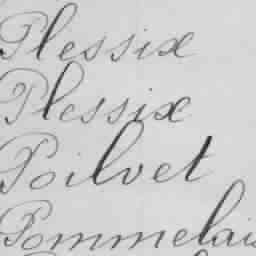 Plessix
Plessix
Poilvet
Pommelais